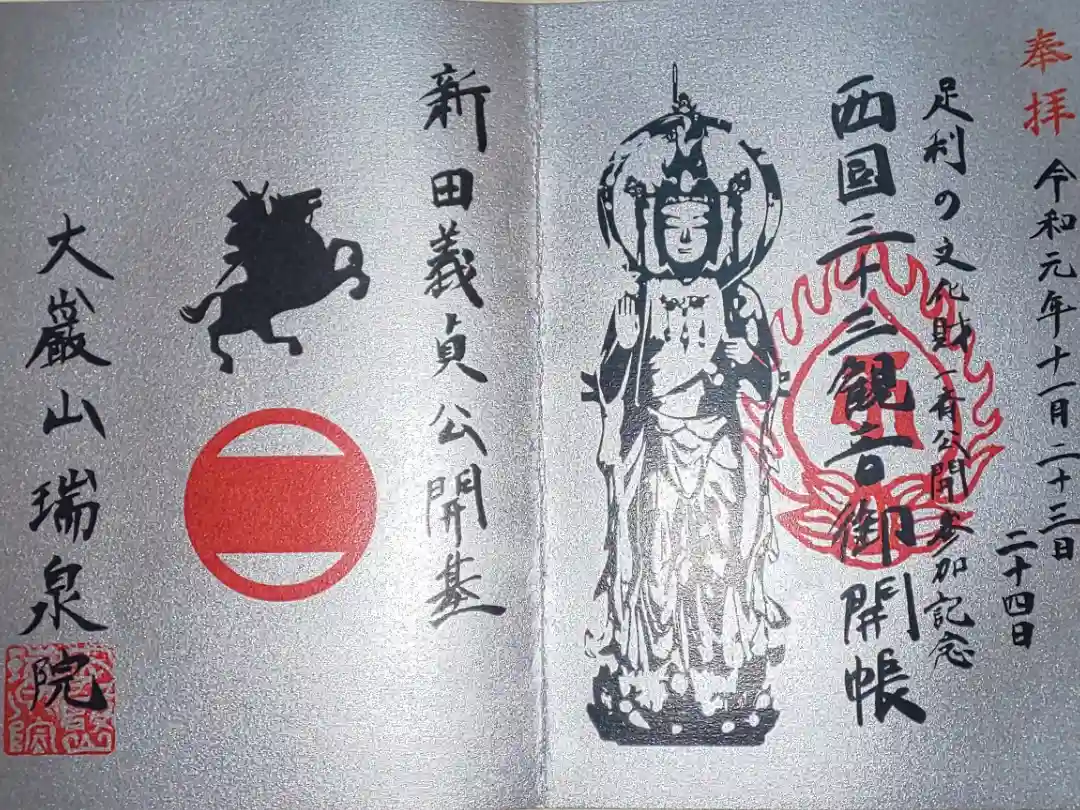 奉拝
令和元年十一月二十三日
二十四日
足利の文化財一斉公開参加記念
西國三十三観音御開帳
新田義貞公開基
大巖山瑞泉院